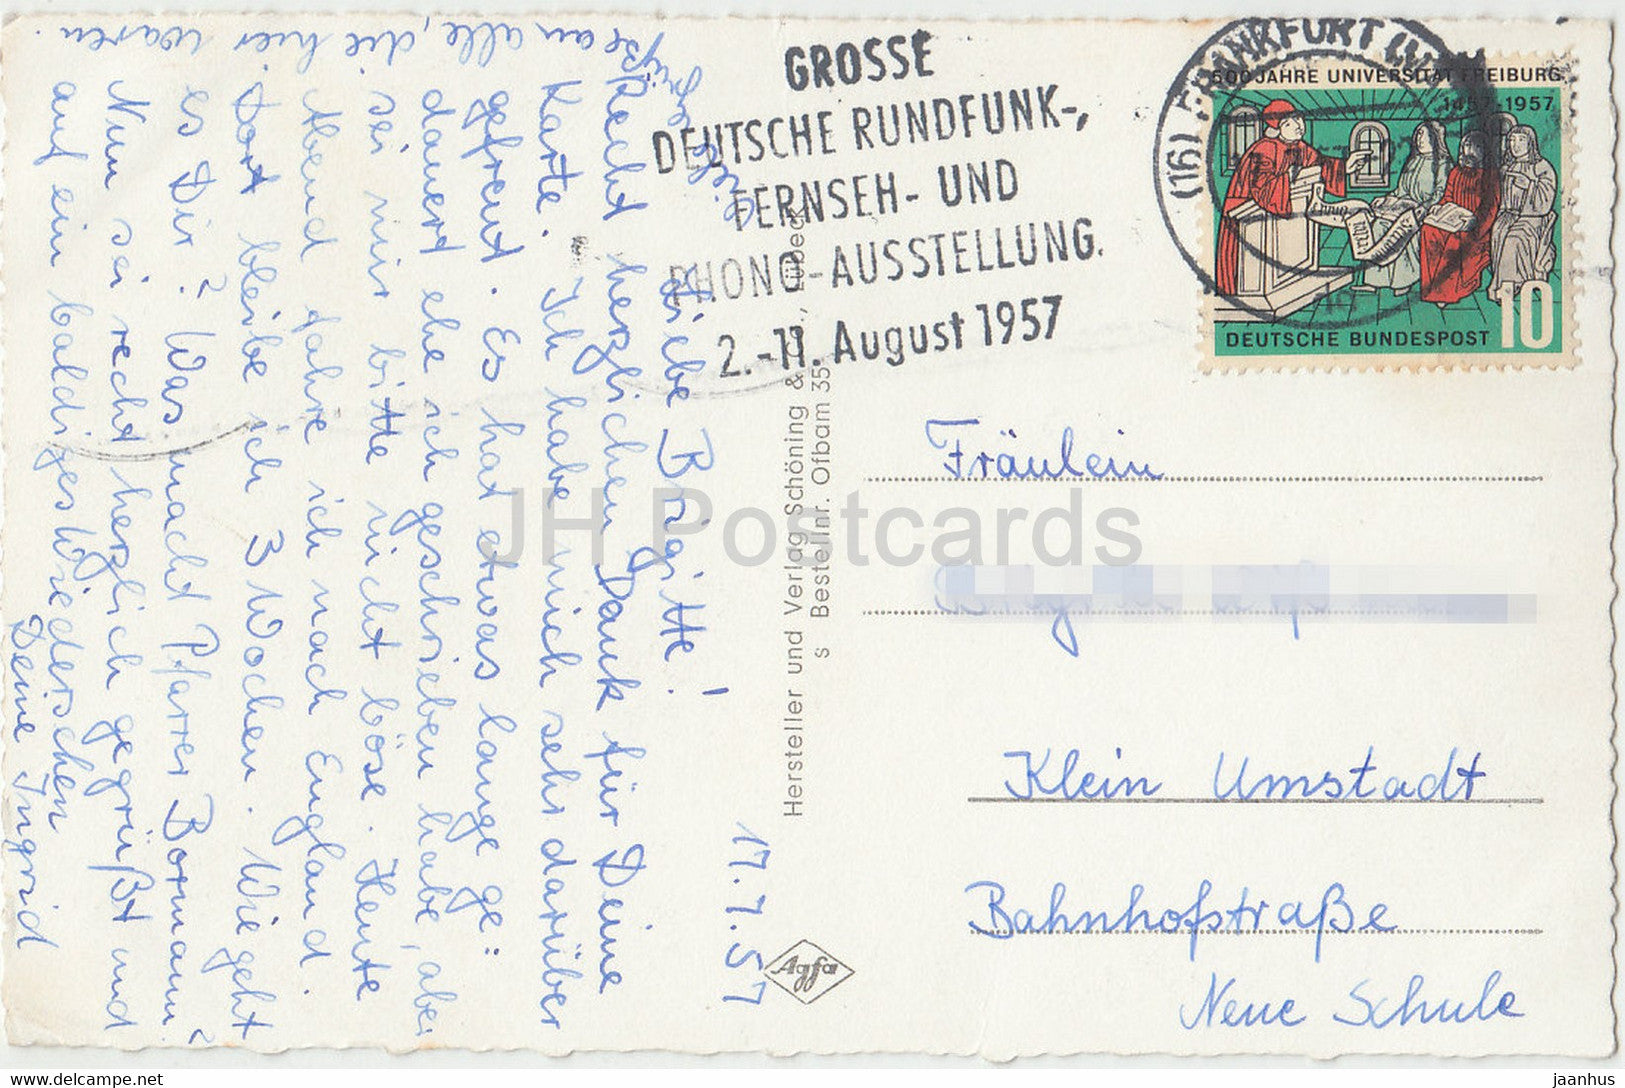 17.7.57
Liebe Brigitte!
Recht herzlichen Dank für Deine
Karte. Ich habe mich sehr darüber
gefreut. Es hat etwas lange ge=
dauert ehe ich geschrieben habe, aber
sei mir bitte nicht böse. Heute
Abend fahre ich nach England.
Dort bleibe ich 3 Wochen. Wie geht
es Dir? Was macht Pfarrer Bormann?
Nun sei recht herzlich gegrüßt und
auf ein baldiges Wiedersehen
Deine Ingrid
an alle, die hier waren.
GROSSE
DEUTSCHE RUNDFUNK-,
FERNSEH- UND
PHONO-AUSSTELLUNG.
2.-11. August 1957
(16) FRANKFURT (MAIN)
500 JAHRE UNIVERSITÄT FREIBURG
1457-1957
DEUTSCHE BUNDESPOST 10
Hersteller und Verlag Schöning & Lübeck
s Bestellnr. Ofbam 35
Agfa
Fräulein
Klein Umstadt
Bahnhofstraße
Neue Schule
JH Postcards
www.delcampe.net
jaanhus